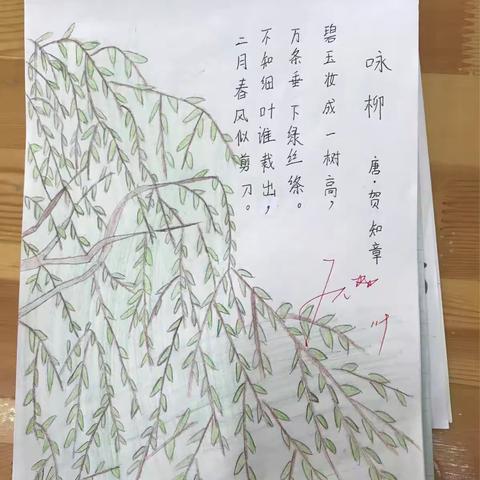 咏柳
唐·贺知章
碧玉妆成一树高，
万条垂下绿丝绦。
不知细叶谁裁出，
二月春风似剪刀。